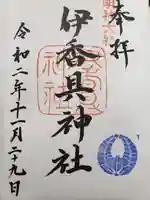 奉拝
伊香具神社
令和二年十一月二十九日